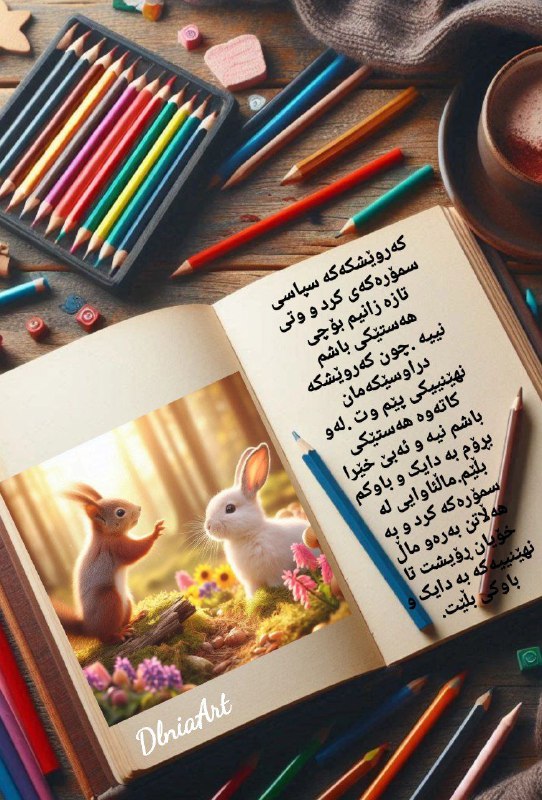 کەروێشکەکە سپاسی
سمۆرەکەی کرد و وتی
تازە زانیم بۆچی
هەستێکی باشم
نییە .چون کەروێشکە
دراوسێکەمان
نهێنییکی پێم وت .لەو
کاتەوە هەستێکی
باشم نیە و ئەبێ خێرا
بڕۆم بە دایک و باوکم
بڵێم.ماڵئاوایی لە
سمۆرەکە کرد و بە
هەڵاتن بەرەو ماڵ
خۆیان ڕۆیشت تا
نهێنییەکە بە دایک و
باوکی بڵێت.
DlniaArt